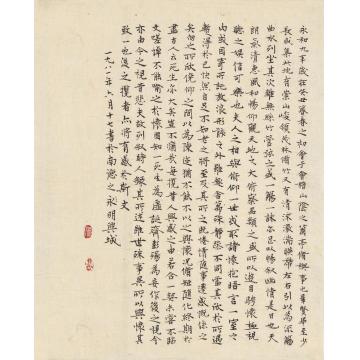 永和九年歲在癸丑暮春之初會于會稽山陰之蘭亭脩禊事也羣賢畢至少
長咸集此地有崇山峻領茂林脩竹又有清流激湍映帶左右引以為流觴
曲水列坐其次雖無絲竹管弦之盛一觴一詠亦足以暢敘幽情是日也天
朗氣清惠風和暢仰觀天地之大俯察品類之盛所以遊目騁懷極視
聽之娛信可樂也夫人之相與俯仰一世或取諸懷抱晤言一室之
內或因寄所託放浪形骸之外雖趣舍萬殊靜躁不同當其欣於所遇
暫得於己快然自足不知老之將至及其所之既惓情隨事遷感慨係之
矣向之所欣俛仰之間為陳迹猶不能不以之興懷況脩短隨化終期於
盡古人云死生亦大矣豈不痛哉每攬昔人興感之由若合一契未嘗不臨
文嗟悼不能喻之於懷固知一死生為虛誕齊彭殤為妄作後之視今
亦由今之視昔悲夫故列敘時人錄其所述雖世殊事異所以興懷其
致一也後之攬者亦將有感於斯文
一九八一年六月十七書於南德之永明興城